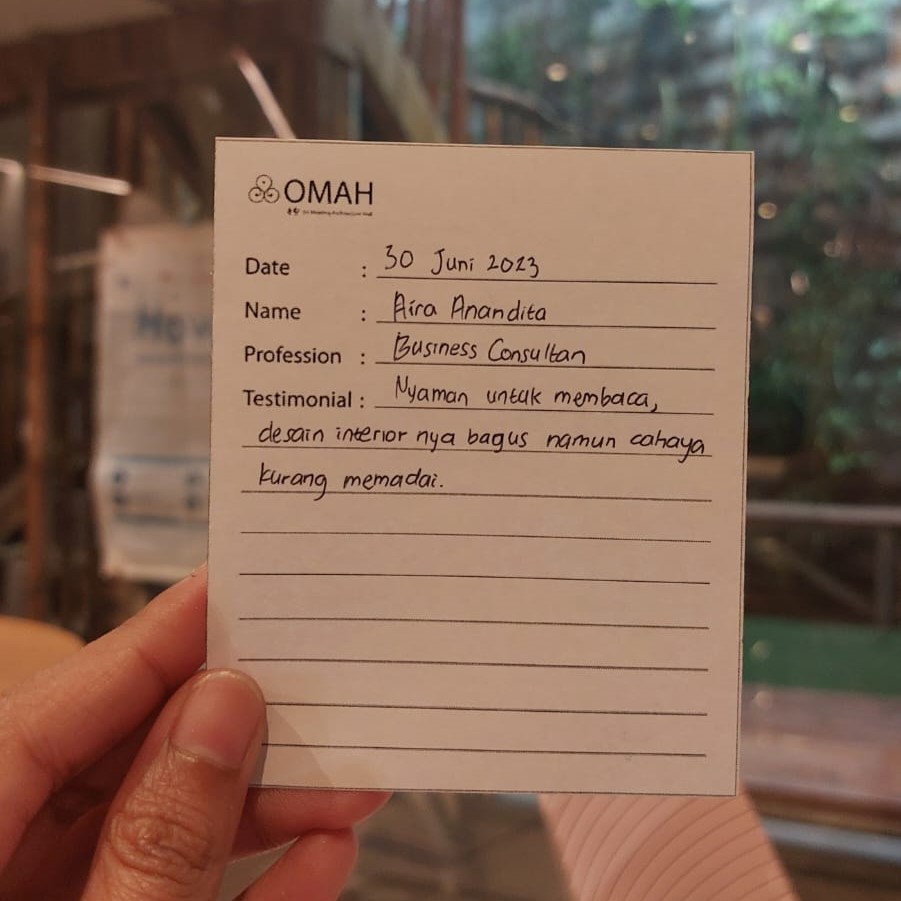 OMAH
Date : 30 Juni 2023
Name : Aira Anandita
Profession : Business Consultan
Testimonial : Nyaman untuk membaca,
desain interior nya bagus namun cahaya
kurang memadai.